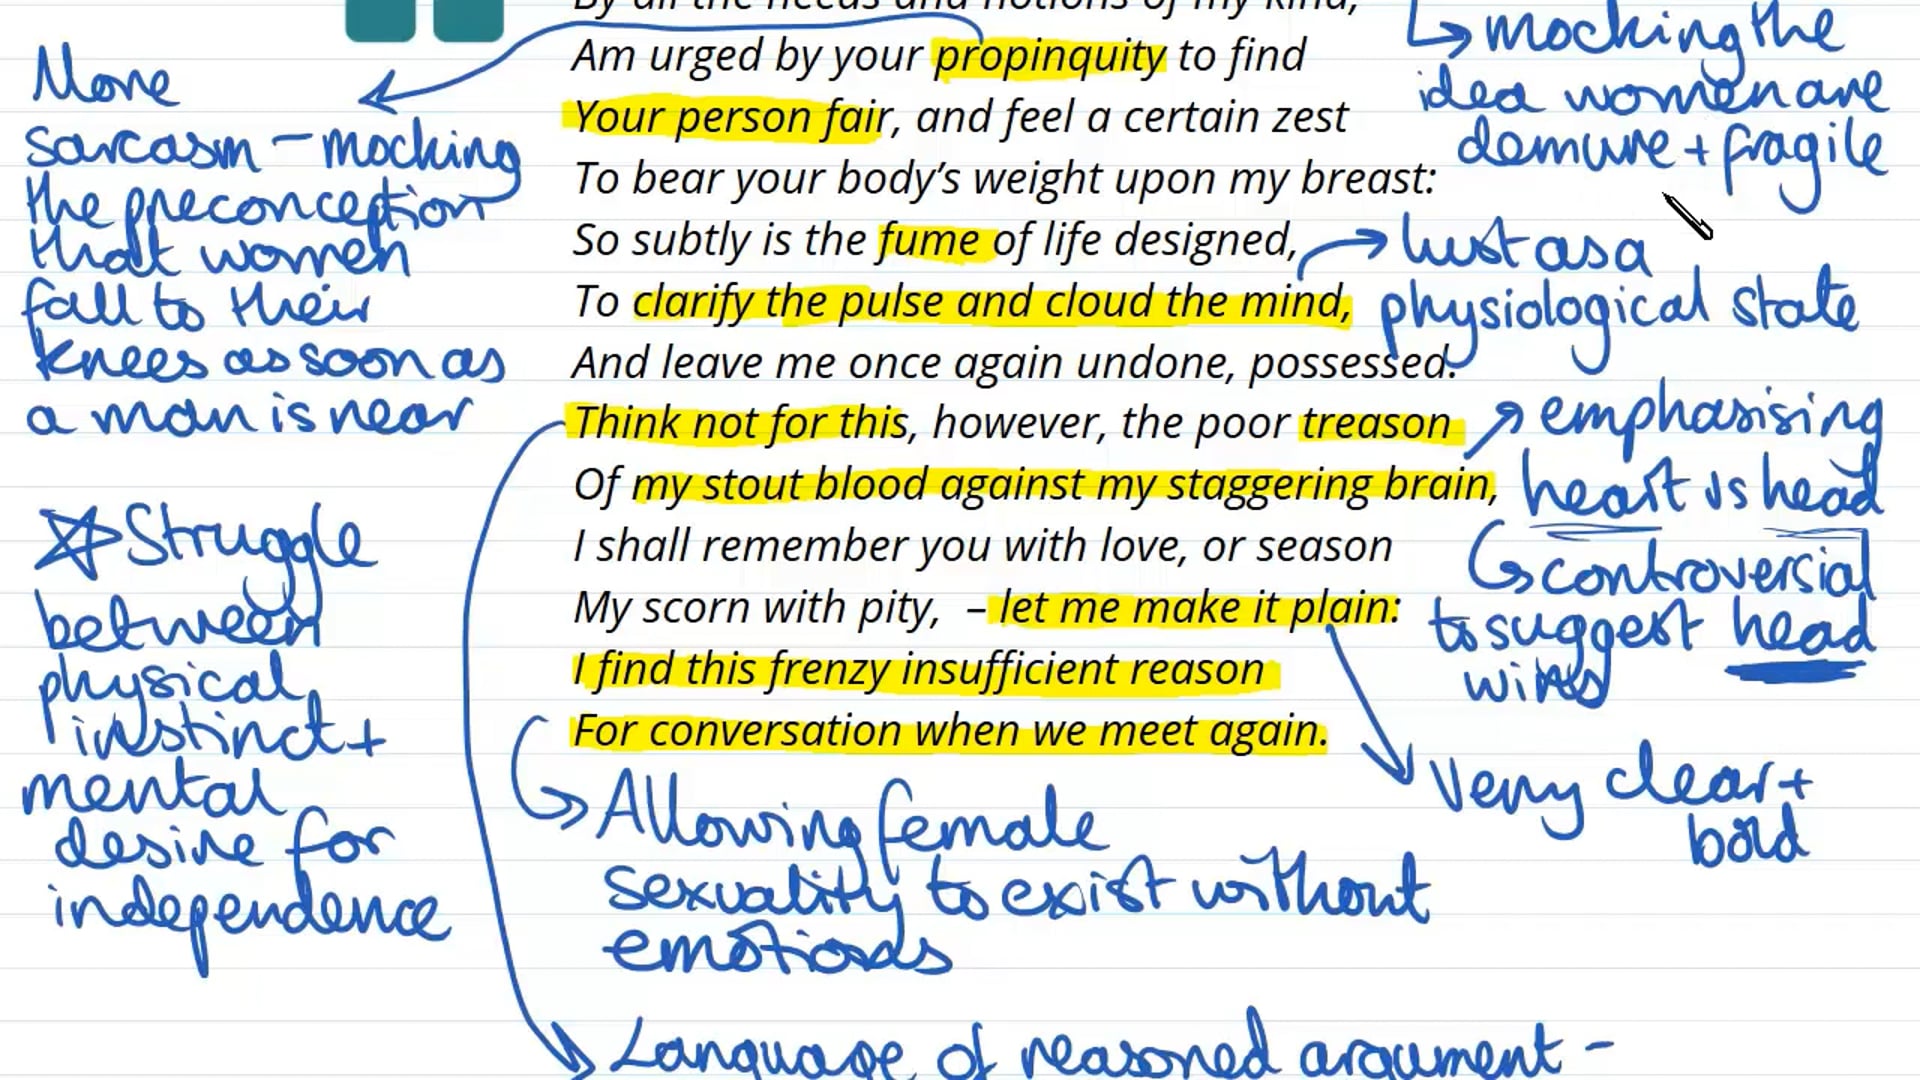 By all the needs and notions of my kind,
Am urged by your propinquity to find
Your person fair, and feel a certain zest
To bear your body’s weight upon my breast:
So subtly is the fume of life designed,
To clarify the pulse and cloud the mind,
And leave me once again undone, possessed.
Think not for this, however, the poor treason
Of my stout blood against my staggering brain,
I shall remember you with love, or season
My scorn with pity, – let me make it plain:
I find this frenzy insufficient reason
For conversation when we meet again.
More
sarcasm - mocking
the preconception
that women
fall to their
knees as soon as
a man is near
Struggle
between
physical
instinct +
mental
desire for
independence
mocking the
idea women are
demure + fragile
lust as a
physiological state
emphasising
heart vs head
controversial
to suggest head
wins
Very clear +
bold
Allowing female
sexuality to exist without
emotions
Language of reasoned argument -